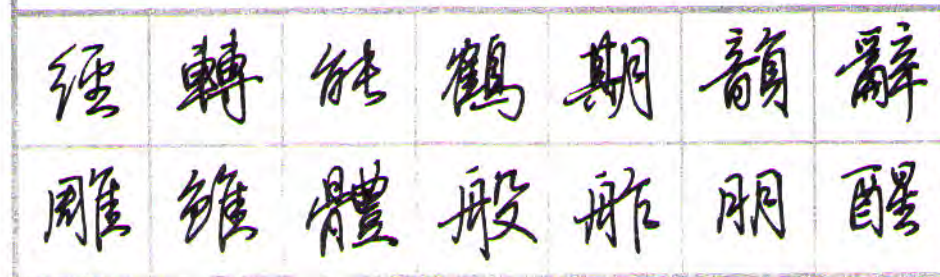 經轉能鶴期韻辭
雕雖體般船朋醒